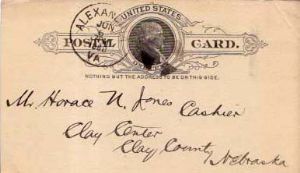 UNITED STATES
POSTAL CARD.
ALEXAN
JUN
VA
NOTHING BUT THE ADDRESS TO BE ON THIS SIDE.
Mr. Horace N. Jones Cashier
Clay Center
Clay County
Nebraska